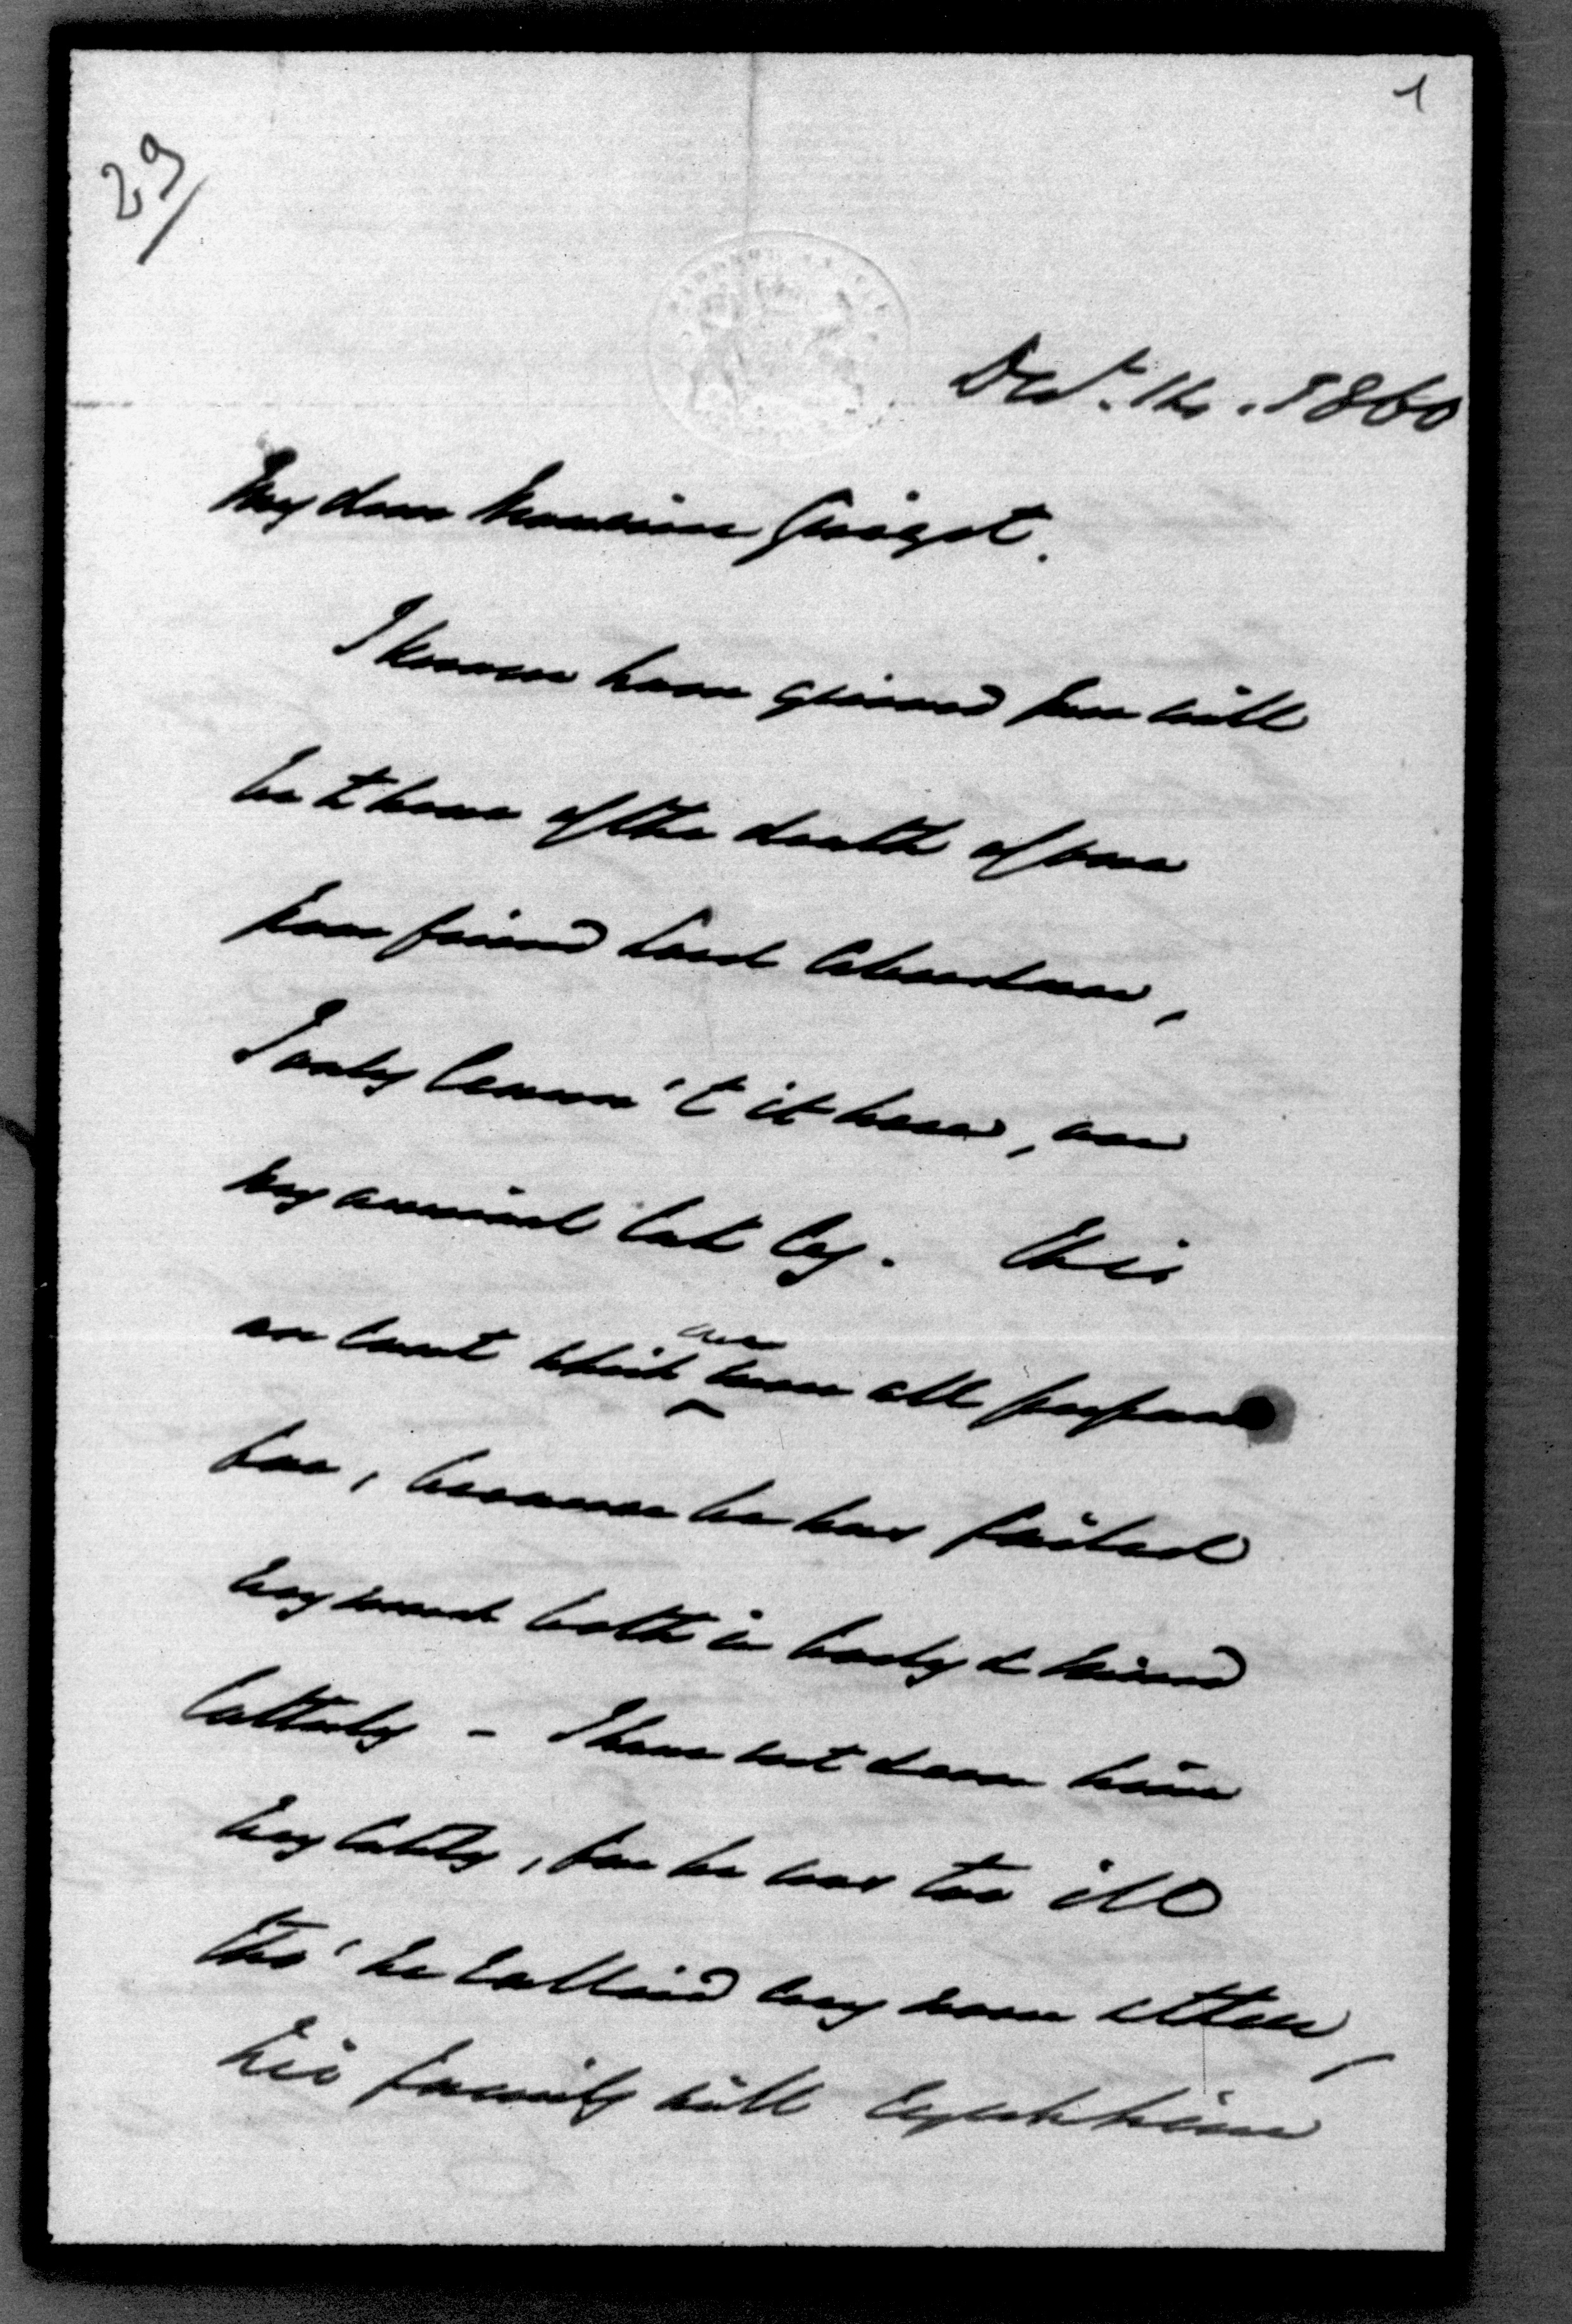 1
29
Decr. 16. 1860
My dear Monsieur Guizot.
I know how grieved you will
be to hear of the death of your
poor friend Lord Aberdeen,
I only learn't it here, on
my arrival last
an event which we were all prepared
for, because he has failed
very much both in body & mind
latterly - I have not seen him
very lately, for he was too ill
tho' he rallied very now & then,
his family will regret him